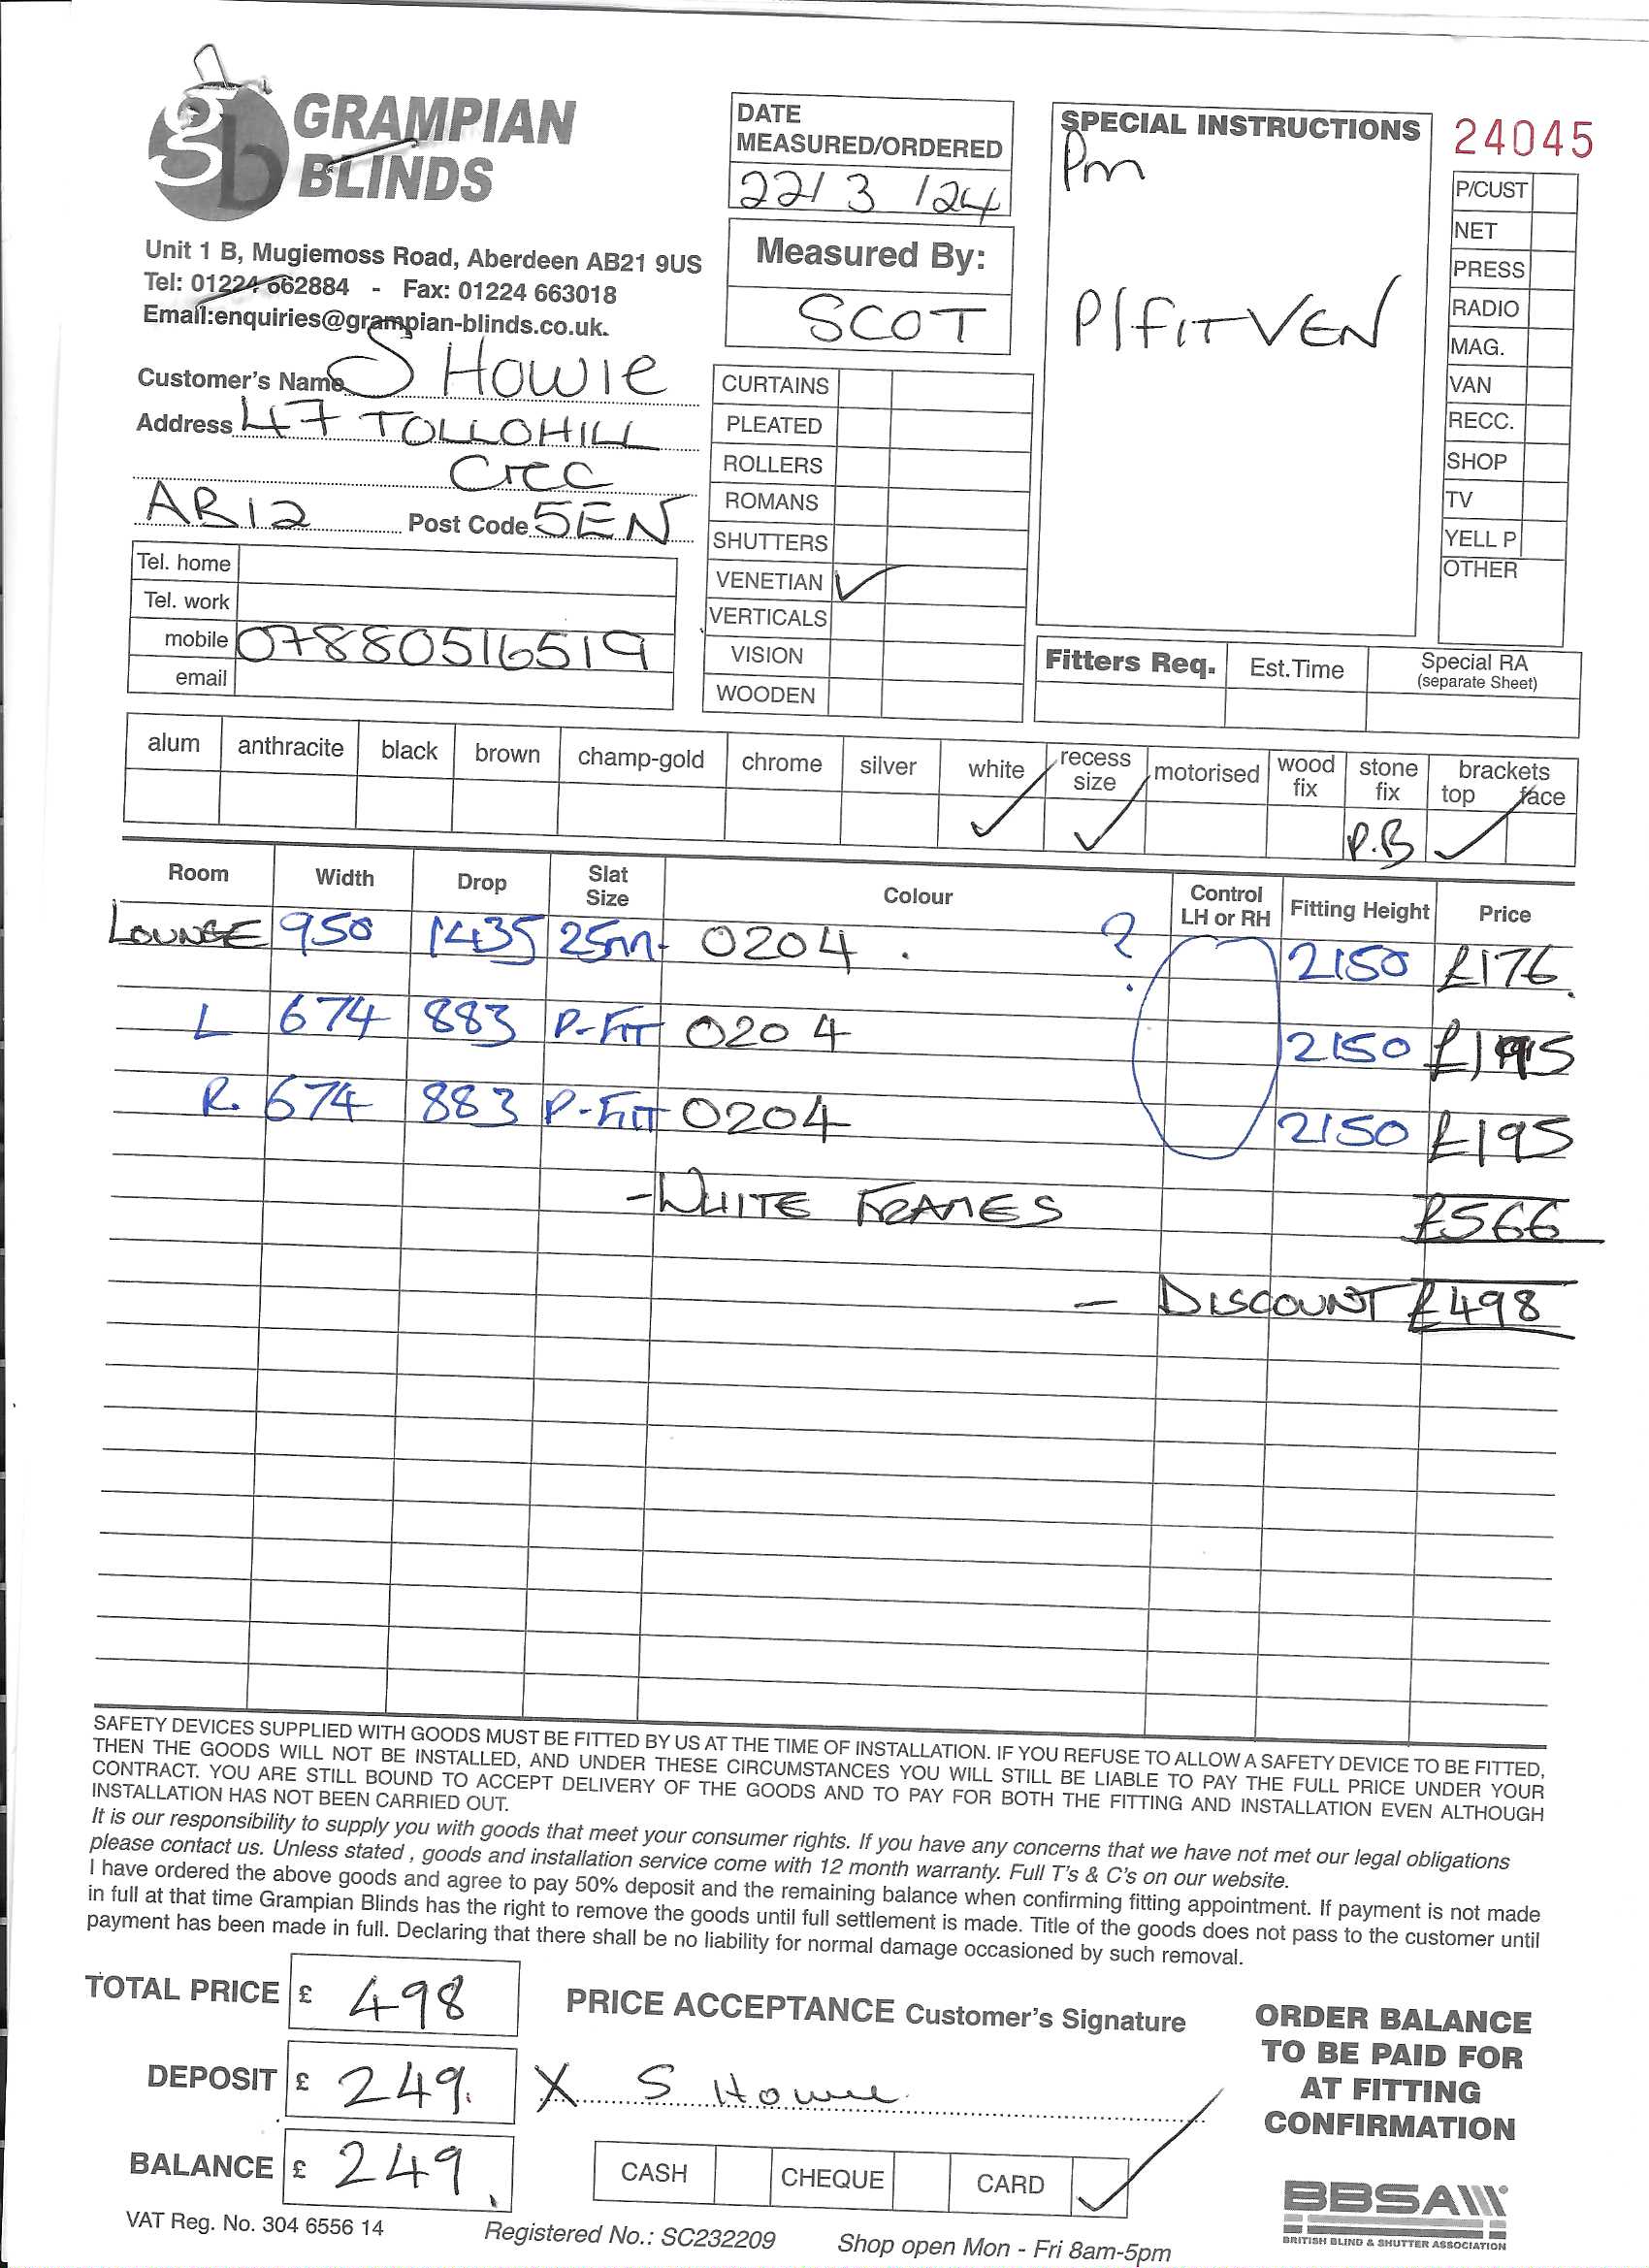 gb GRAMPIAN
BLINDS
Unit 1 B, Mugiemoss Road, Aberdeen AB21 9US
Tel: 01224 662884 - Fax: 01224 663018
Email:enquiries@grampian-blinds.co.uk.
Customer's Name S HOWIE
Address 47 TOLLOHILL
CREC
AB12 Post Code 5EN
Tel. home
Tel. work
mobile 07880516519
email
DATE
MEASURED/ORDERED
22/3/24
Measured By:
SCOT
CURTAINS
PLEATED
ROLLERS
ROMANS
SHUTTERS
VENETIAN ✓
VERTICALS
VISION
WOODEN
SPECIAL INSTRUCTIONS
Pm
P/FITVEN
24045
P/CUST
NET
PRESS
RADIO
MAG.
VAN
RECC.
SHOP
TV
YELL P
OTHER
Fitters Req. Est.Time Special RA
(separate Sheet)
alum anthracite black brown champ-gold chrome silver white recess size motorised wood fix stone fix brackets top face
✓ ✓ P.B ✓
Room Width Drop Slat Size Colour Control LH or RH Fitting Height Price
LOUNGE 950 1435 25m 0204 . ? 2150 £176.
L 674 883 P-FIT 0204 2150 £195
R. 674 883 P-FIT 0204 2150 £195
- WHITE FRAMES £566
- DISCOUNT £498
SAFETY DEVICES SUPPLIED WITH GOODS MUST BE FITTED BY US AT THE TIME OF INSTALLATION. IF YOU REFUSE TO ALLOW A SAFETY DEVICE TO BE FITTED,
THEN THE GOODS WILL NOT BE INSTALLED, AND UNDER THESE CIRCUMSTANCES YOU WILL STILL BE LIABLE TO PAY THE FULL PRICE UNDER YOUR
CONTRACT. YOU ARE STILL BOUND TO ACCEPT DELIVERY OF THE GOODS AND TO PAY FOR BOTH THE FITTING AND INSTALLATION EVEN ALTHOUGH
INSTALLATION HAS NOT BEEN CARRIED OUT.
It is our responsibility to supply you with goods that meet your consumer rights. If you have any concerns that we have not met our legal obligations
please contact us. Unless stated , goods and installation service come with 12 month warranty. Full T's & C's on our website.
I have ordered the above goods and agree to pay 50% deposit and the remaining balance when confirming fitting appointment. If payment is not made
in full at that time Grampian Blinds has the right to remove the goods until full settlement is made. Title of the goods does not pass to the customer until
payment has been made in full. Declaring that there shall be no liability for normal damage occasioned by such removal.
TOTAL PRICE £ 498
DEPOSIT £ 249.
BALANCE £ 249.
PRICE ACCEPTANCE Customer's Signature
X S Howie
CASH CHEQUE CARD ✓
ORDER BALANCE
TO BE PAID FOR
AT FITTING
CONFIRMATION
BBSA
BRITISH BLIND & SHUTTER ASSOCIATION
VAT Reg. No. 304 6556 14 Registered No.: SC232209 Shop open Mon - Fri 8am-5pm